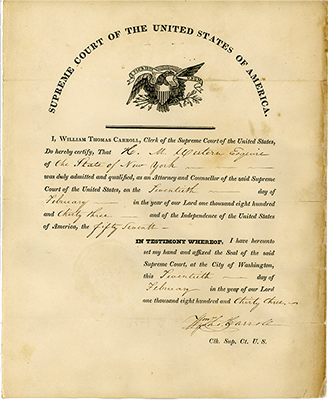 SUPREME COURT OF THE UNITED STATES OF AMERICA.
I, WILLIAM THOMAS CARROLL, Clerk of the Supreme Court of the United States,
Do hereby certify, That H. M. Esquire
of the State of New York —
was duly admitted and qualified, as an Attorney and Counsellor of the said Supreme
Court of the United States, on the Twentieth — day of
February — in the year of our Lord one thousand eight hundred
and thirty three — and of the Independence of the United States
of America, the fifty seventh —
IN TESTIMONY WHEREOF, I have hereunto
set my hand and affixed the Seal of the said
Supreme Court, at the City of Washington,
this Twentieth — day of
February in the year of our Lord
one thousand eight hundred and thirty three, —
Wm Tho Carroll
Clk. Sup. Ct. U. S.